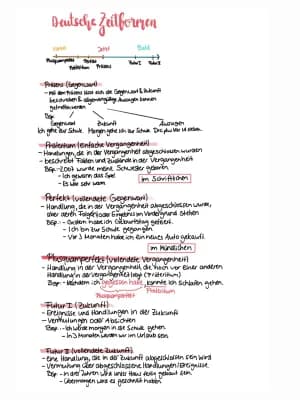 Deutsche Zeitformen
Jetzt Bald
Plusquamperfekt Perfekt Futur II Futur I
Präteritum Präsens
Präsens (Gegenwart)
- mit dem Präsens lässt sich die Gegenwart & Zukunft
beschreiben & allgemeingültige Aussagen können
getroffen werden
Bsp: Gegenwart Zukunft Aussagen
Ich gehe zur Schule. Morgen gehe ich zur Schule. Drei plus vier ist sieben.
Präteritum (einfache Vergangenheit)
- Handlungen, die in der Vergangenheit abgeschlossen wurden
- beschreibt Fakten und Zustände in der Vergangenheit
Bsp.: - 2007 wurde meine Schwester geboren.
- Ich gewann das Spiel
- Es war sehr warm.
im Schriftlichen
Perfekt (vollendete Gegenwart)
- Handlung, die in der Vergangenheit abgeschlossen wurde,
aber deren Folgen oder Ergebnis im Vordergrund stehen
Bsp.: - Gestern habe ich Geburtstag gefeiert.
- Ich bin zur Schule gegangen
- Vor 3 Monaten habe ich ein neues Auto gekauft.
im Mündlichen
Plusquamperfekt (vollendete Vergangenheit)
- Handlung in der Vergangenheit, die noch vor einer anderen
Handlung in der Vergangenheit liegt (Präteritum)
Bsp.: - Nachdem ich gegessen hatte, konnte ich schlafen gehen.
Plusquamperfekt Präteritum
Futur I (Zukunft)
- Ereignisse und Handlungen in der Zukunft
- Vermutungen oder Absichten
Bsp.: - Ich werde morgen in die Schule gehen.
- In 3 Monaten werden wir im Urlaub sein.
Futur II (vollendete Zukunft)
- Eine Handlung, die in der Zukunft abgeschlossen sein wird
- Vermutung über abgeschlossene Handlungen/Ereignisse.
Bsp.: - In drei Jahren wird unser Haus fertig gebaut sein.
- Übermorgen wird es geschneit haben.